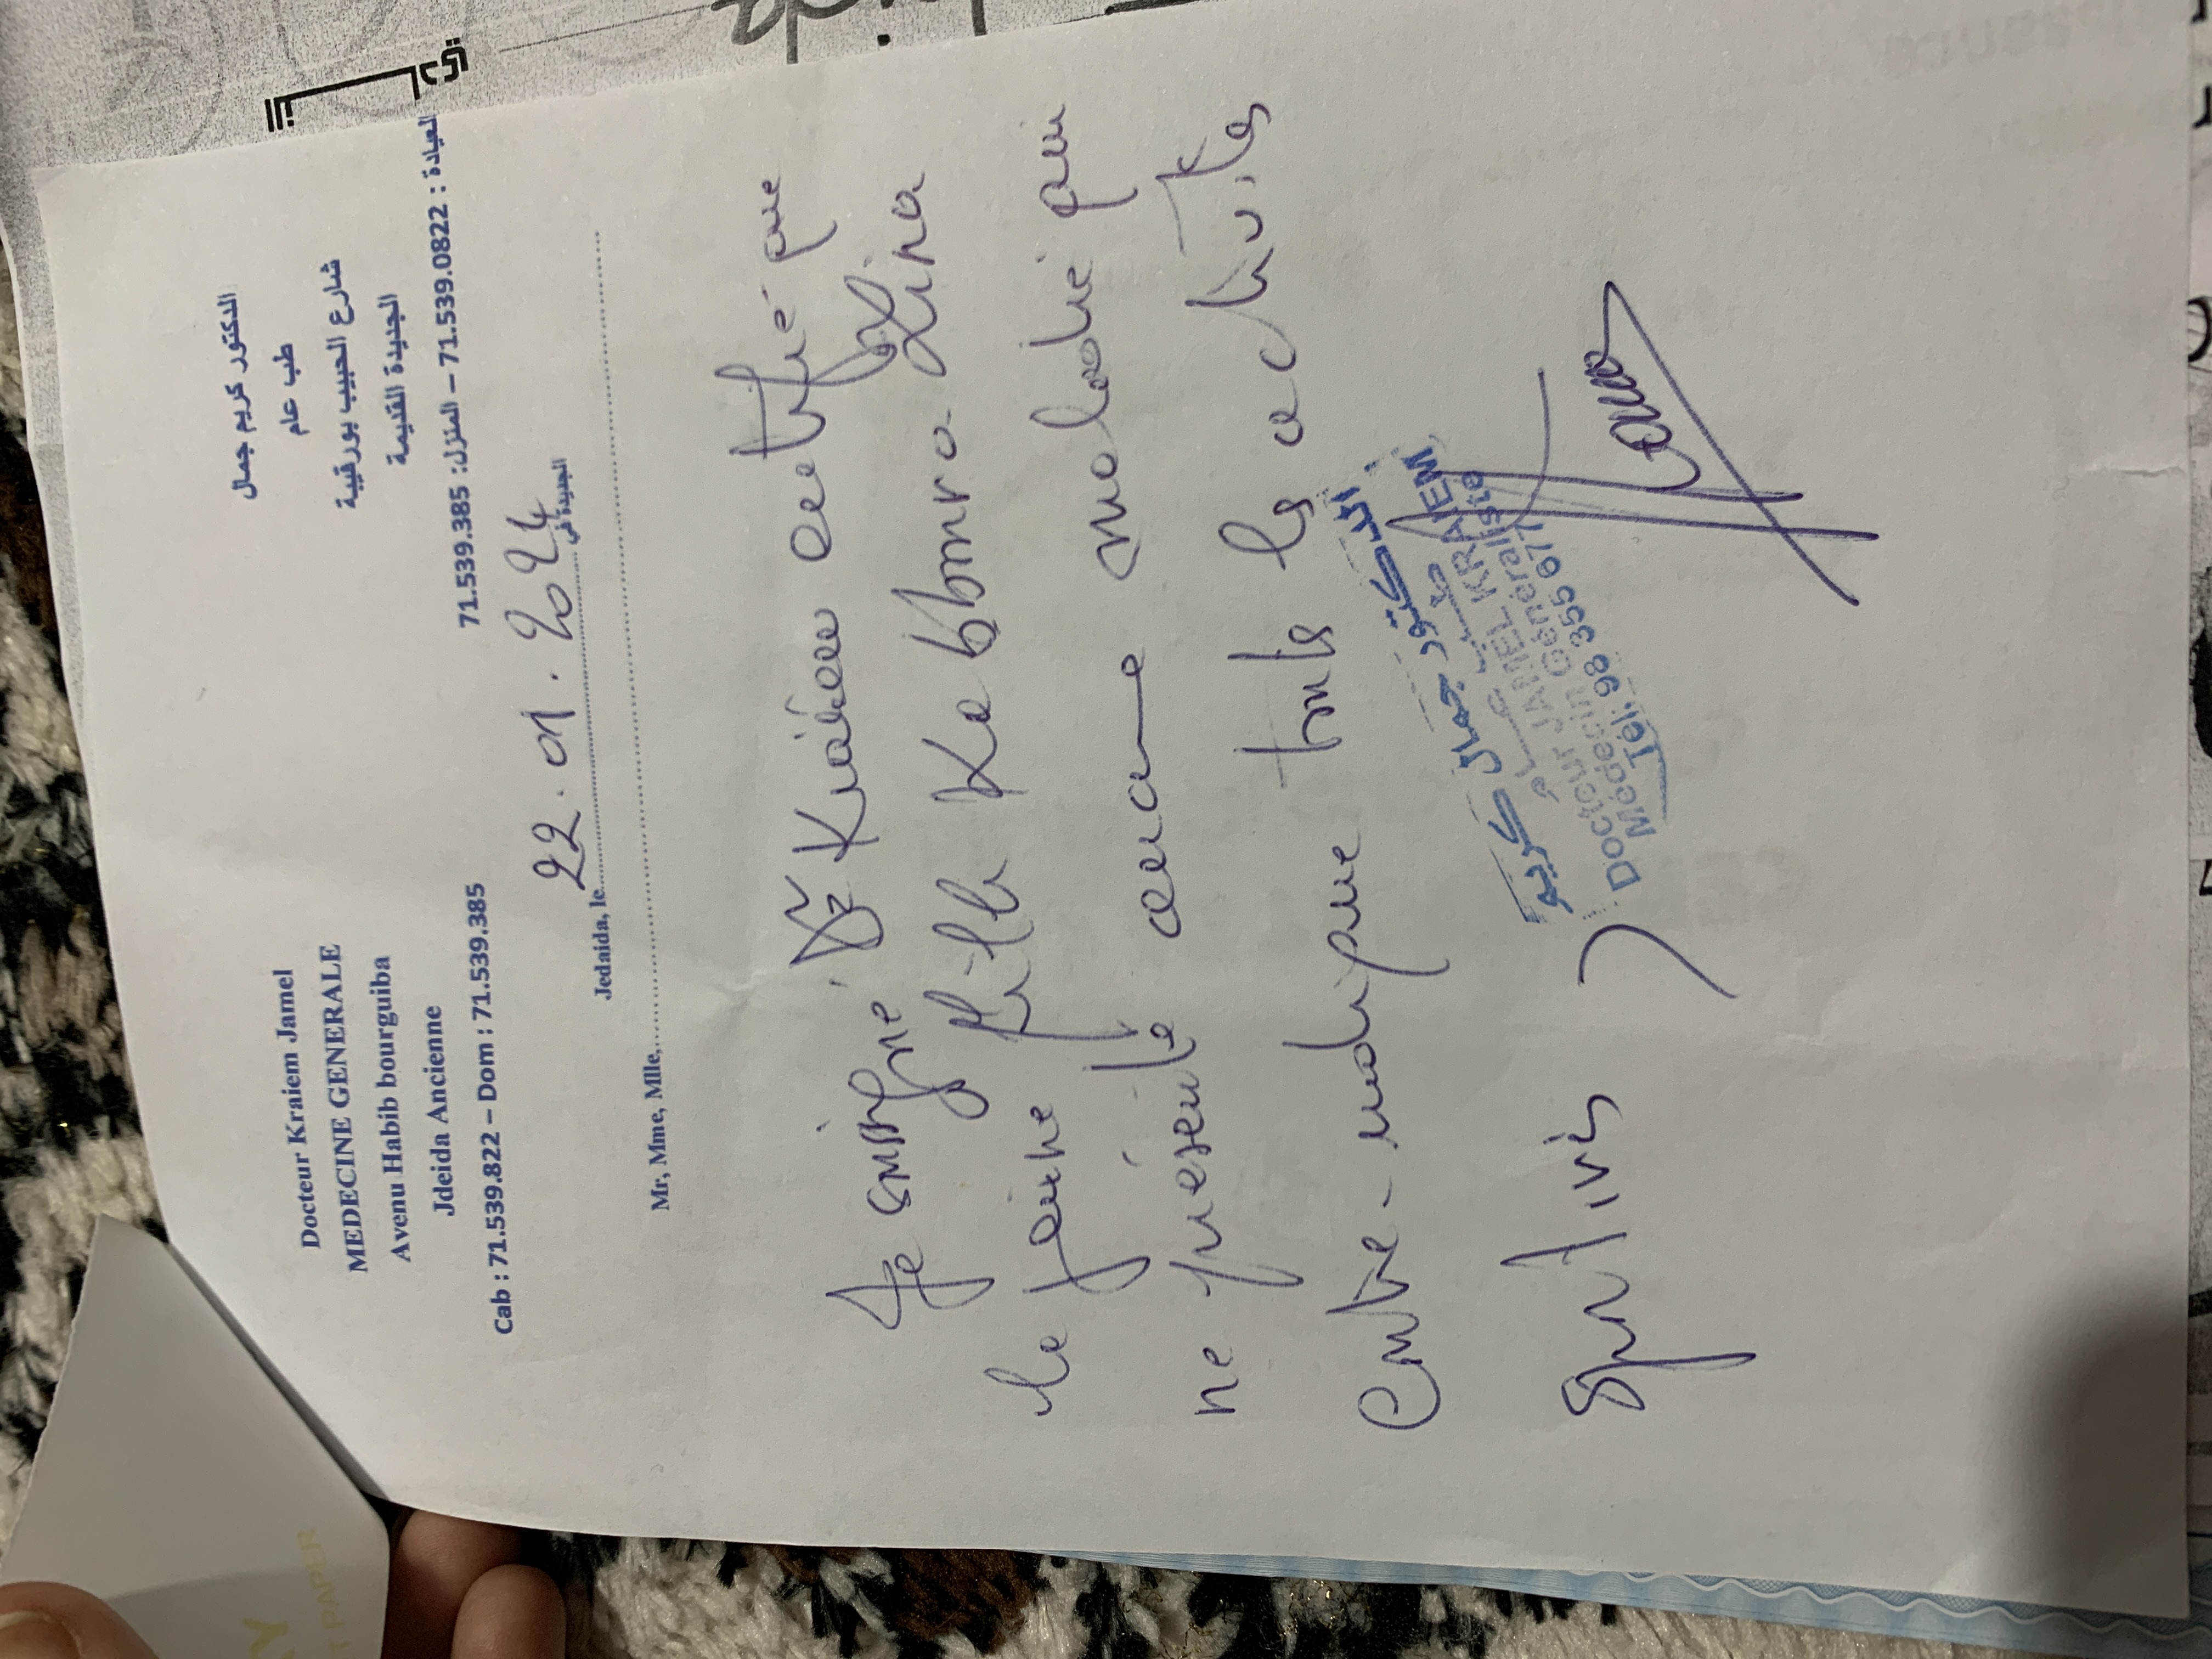 Docteur Kraiem Jamel
MEDECINE GENERALE
Avenu Habib bourguiba
Jdeida Ancienne
Cab : 71.539.822 – Dom : 71.539.385
الدكتور كريم جمال
طب عام
شارع الحبيب بورقيبة
الجديدة القديمة
العيادة : 71.539.0822 – المنزل: 71.539.385
Jedaida, le 22.01.2024 الجديدة في
Mr, Mme, Mlle,
Je soussigné Dr Kraiem certifie que
la jeune fille Lina
ne présente aucune maladie qui
contre-indique toute les activités
sportives
الدكتور جمال كريم
طب عام
Docteur JAMEL KRAIEM
Médecin Généraliste
Tél: 98 355 677